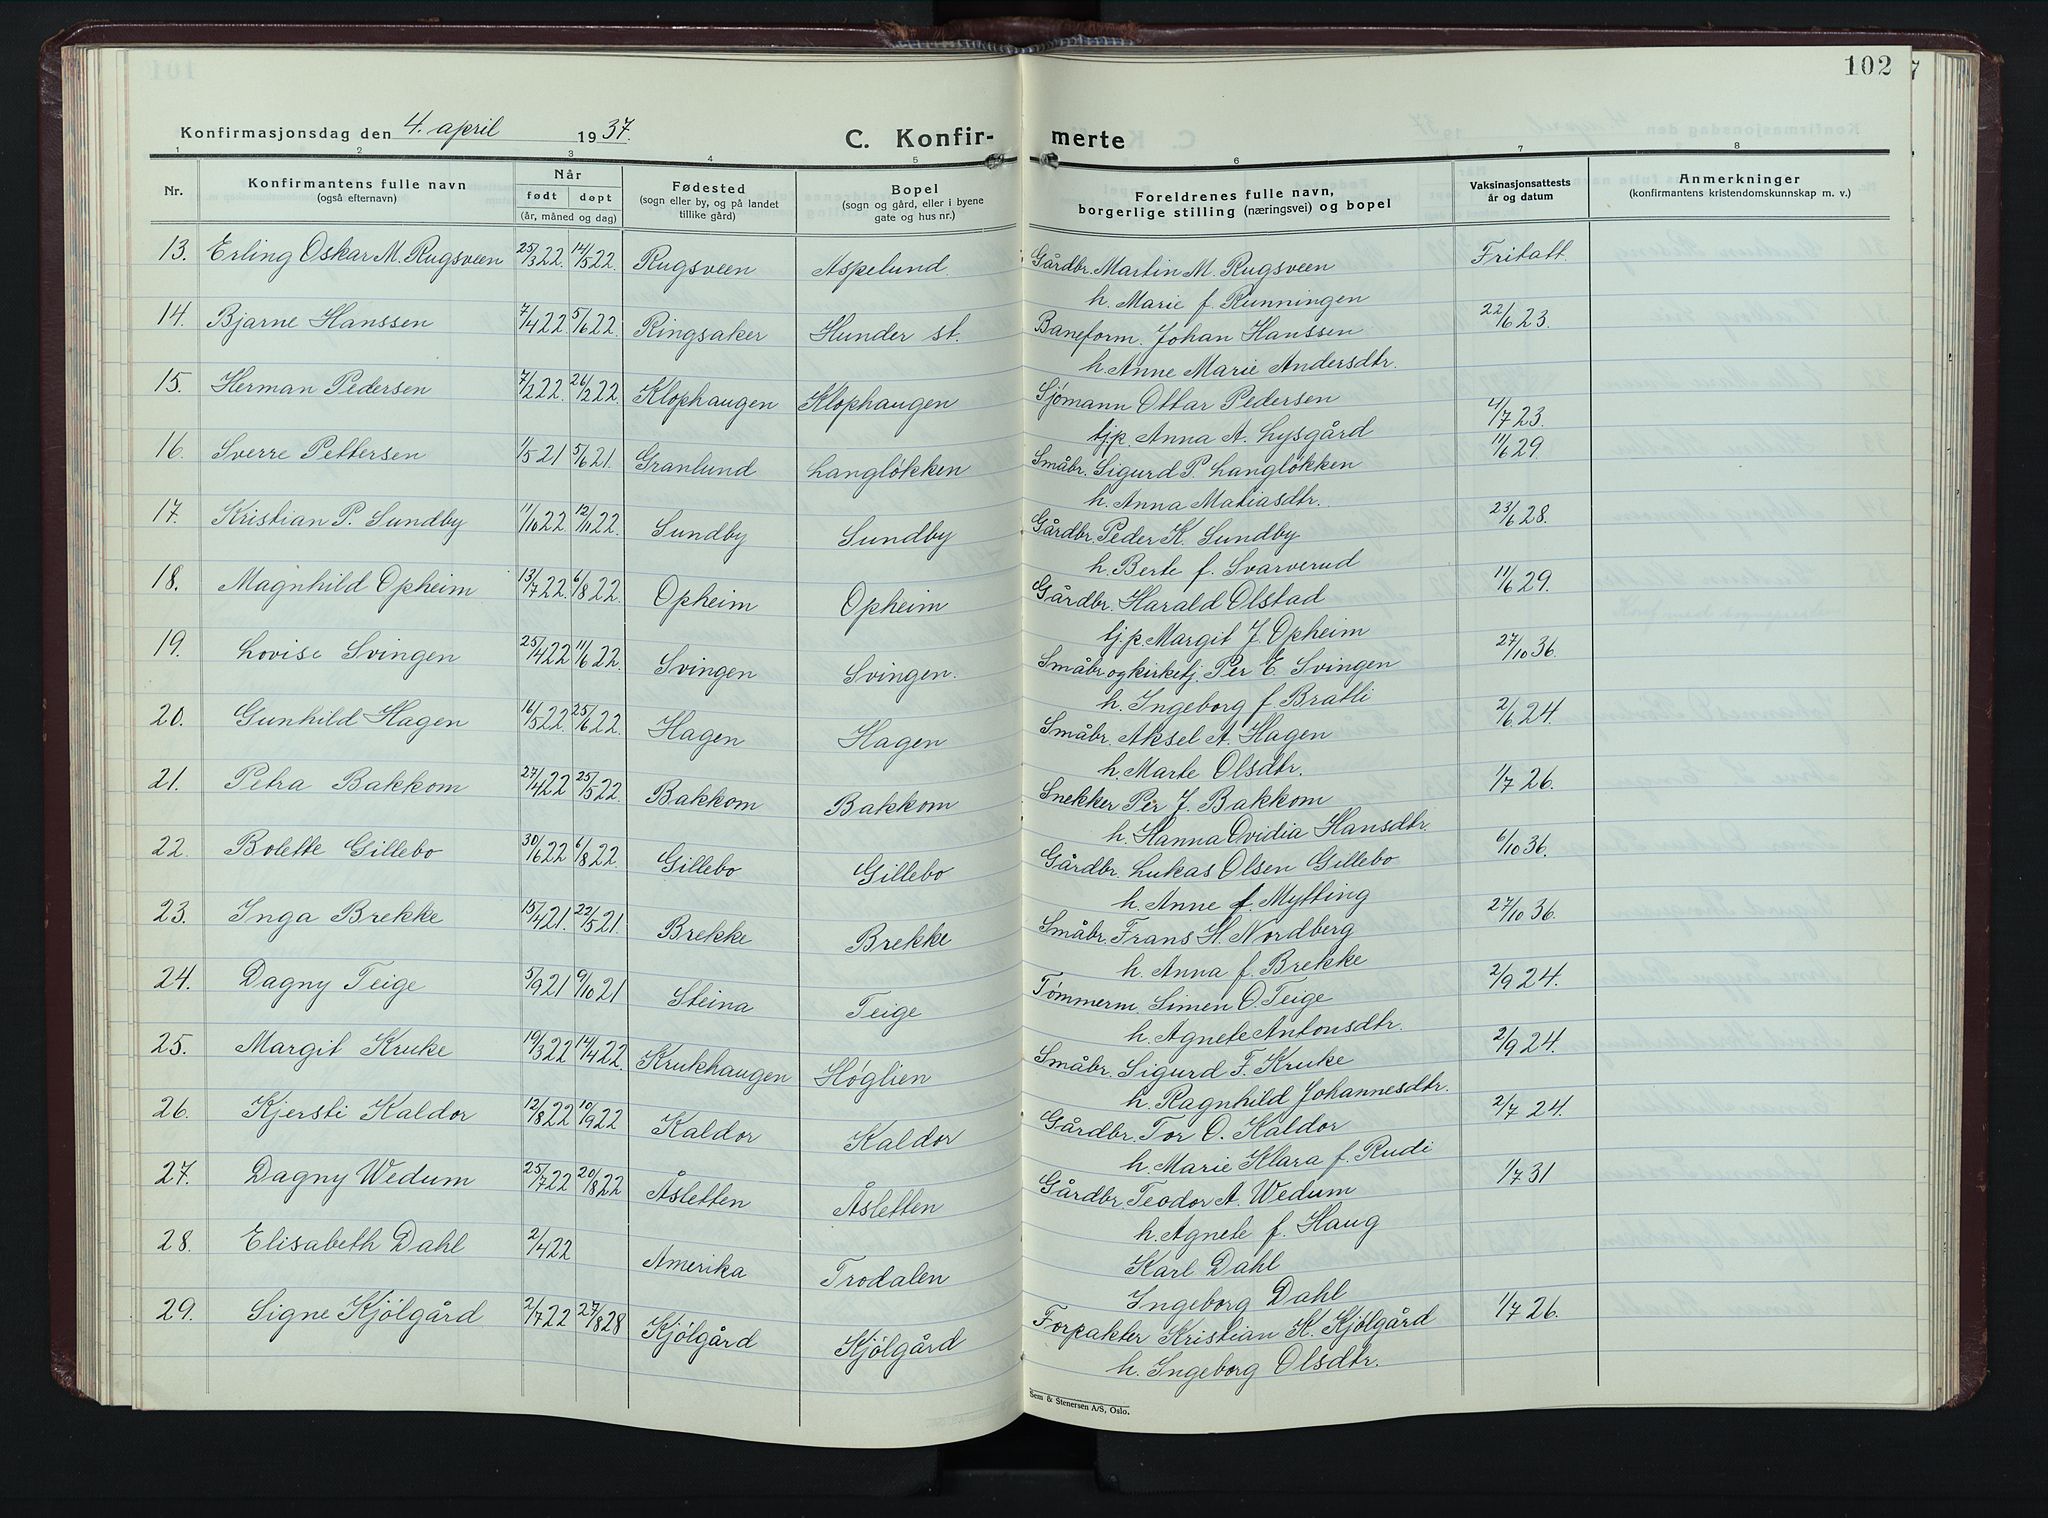 102
Konfirmasjonsdag den 4. april 1937.
C. Konfir- merte
1 2 3 4 5 6 7 8
Nr. Konfirmantens fulle navn (også efternavn) Når født døpt (år, måned og dag) Fødested (sogn eller by, og på landet tillike gård) Bopel (sogn og gård, eller i byene gate og hus nr.) Foreldrenes fulle navn, borgerlige stilling (næringsvei) og bopel Vaksinasjonsattests år og datum Anmerkninger (konfirmantens kristendomskunnskap m. v.)
13. Erling Oskar M. Rugsveen 25/3 22. 14/5 22. Rugsveen Aspelund. Gårdbr. Martin M. Rugsveen Fritatt
h. Marie f. Runningen
14. Bjarne Hanssen 7/4 22 5/6 22. Ringsaker Hunder st. Baneform. Johan Hanssen 22/6 23.
h. Anne Marie Andersdtr.
15. Herman Pedersen 7/2 22. 26/2 22. Klophaugen Klophaugen Sjømann Ottar Pedersen 4/7 23.
tj.p. Anna A. Lysgård
16. Sverre Pettersen 1/5 21 5/6 21. Granlund Langløkken Småbr. Sigurd P. Langløkken 11/6 29
h. Anna Matiasdtr.
17. Kristian P. Sundby 11/10 22. 12/11 22. Sundby Sundby Gårdbr. Peder K. Sundby 23/6 28.
h. Berte f. Svarverud
18. Magnhild Opheim 13/7 22. 6/8 22. Opheim Opheim Gårdbr. Harald Olstad 11/6 29.
tj.p. Margit J. Opheim
19. Lovise Svingen 25/4 22 11/6 22. Svingen Svingen. Småbr og kirketj. Per E. Svingen 27/10 36.
h. Ingeborg f. Bratli
20. Gunhild Hagen 16/5 22. 25/6 22. Hagen Hagen Småbr. Aksel A. Hagen 2/6 24.
h. Marte Olsdtr.
21. Petra Bakkom 27/4 22 25/5 22. Bakkom Bakkom Snekker Per J. Bakkom 1/7 26.
h. Hanna Ovidia Hansdtr.
22. Bolette Gillebo 30/6 22 6/8 22. Gillebo Gillebo Gårdbr. Lukas Olsen Gillebo 6/10 36.
h. Anne f. Mytting
23. Inga Brekke 15/4 21. 22/5 21. Brekke Brekke Småbr. Frans H. Nordberg 27/10 36.
h. Anna f. Brekke
24. Dagny Teige 5/9 21 9/10 21 Steina Teige Tømmerm. Simen O. Teige 2/9 24.
h. Agnete Antonsdtr.
25. Margit Kruke 19/3 22 14/4 22. Krukhaugen Høglien Småbr. Sigurd F. Kruke 2/9 24.
h. Ragnhild Johannesdtr.
26. Kjersti Kaldor 12/8 22 10/9 22 Kaldor Kaldor Gårdbr. Tor O. Kaldor 2/7 24.
h. Marie Klara f. Rudi
27. Dagny Wedum 25/7 22 20/8 22 Åsletten Åsletten Gårdbr. Teodor A. Wedum 1/7 31
h. Agnete f. Haug
28. Elisabeth Dahl 2/4 22 Amerika Trodalen Karl Dahl
Ingeborg Dahl
29. Signe Kjølgård 2/7 22 27/8 28 Kjølgård Kjølgård Forpakter Kristian K. Kjølgård 1/7 26.
h. Ingeborg Olsdtr.
Sem & Stenersen A/S, Oslo.